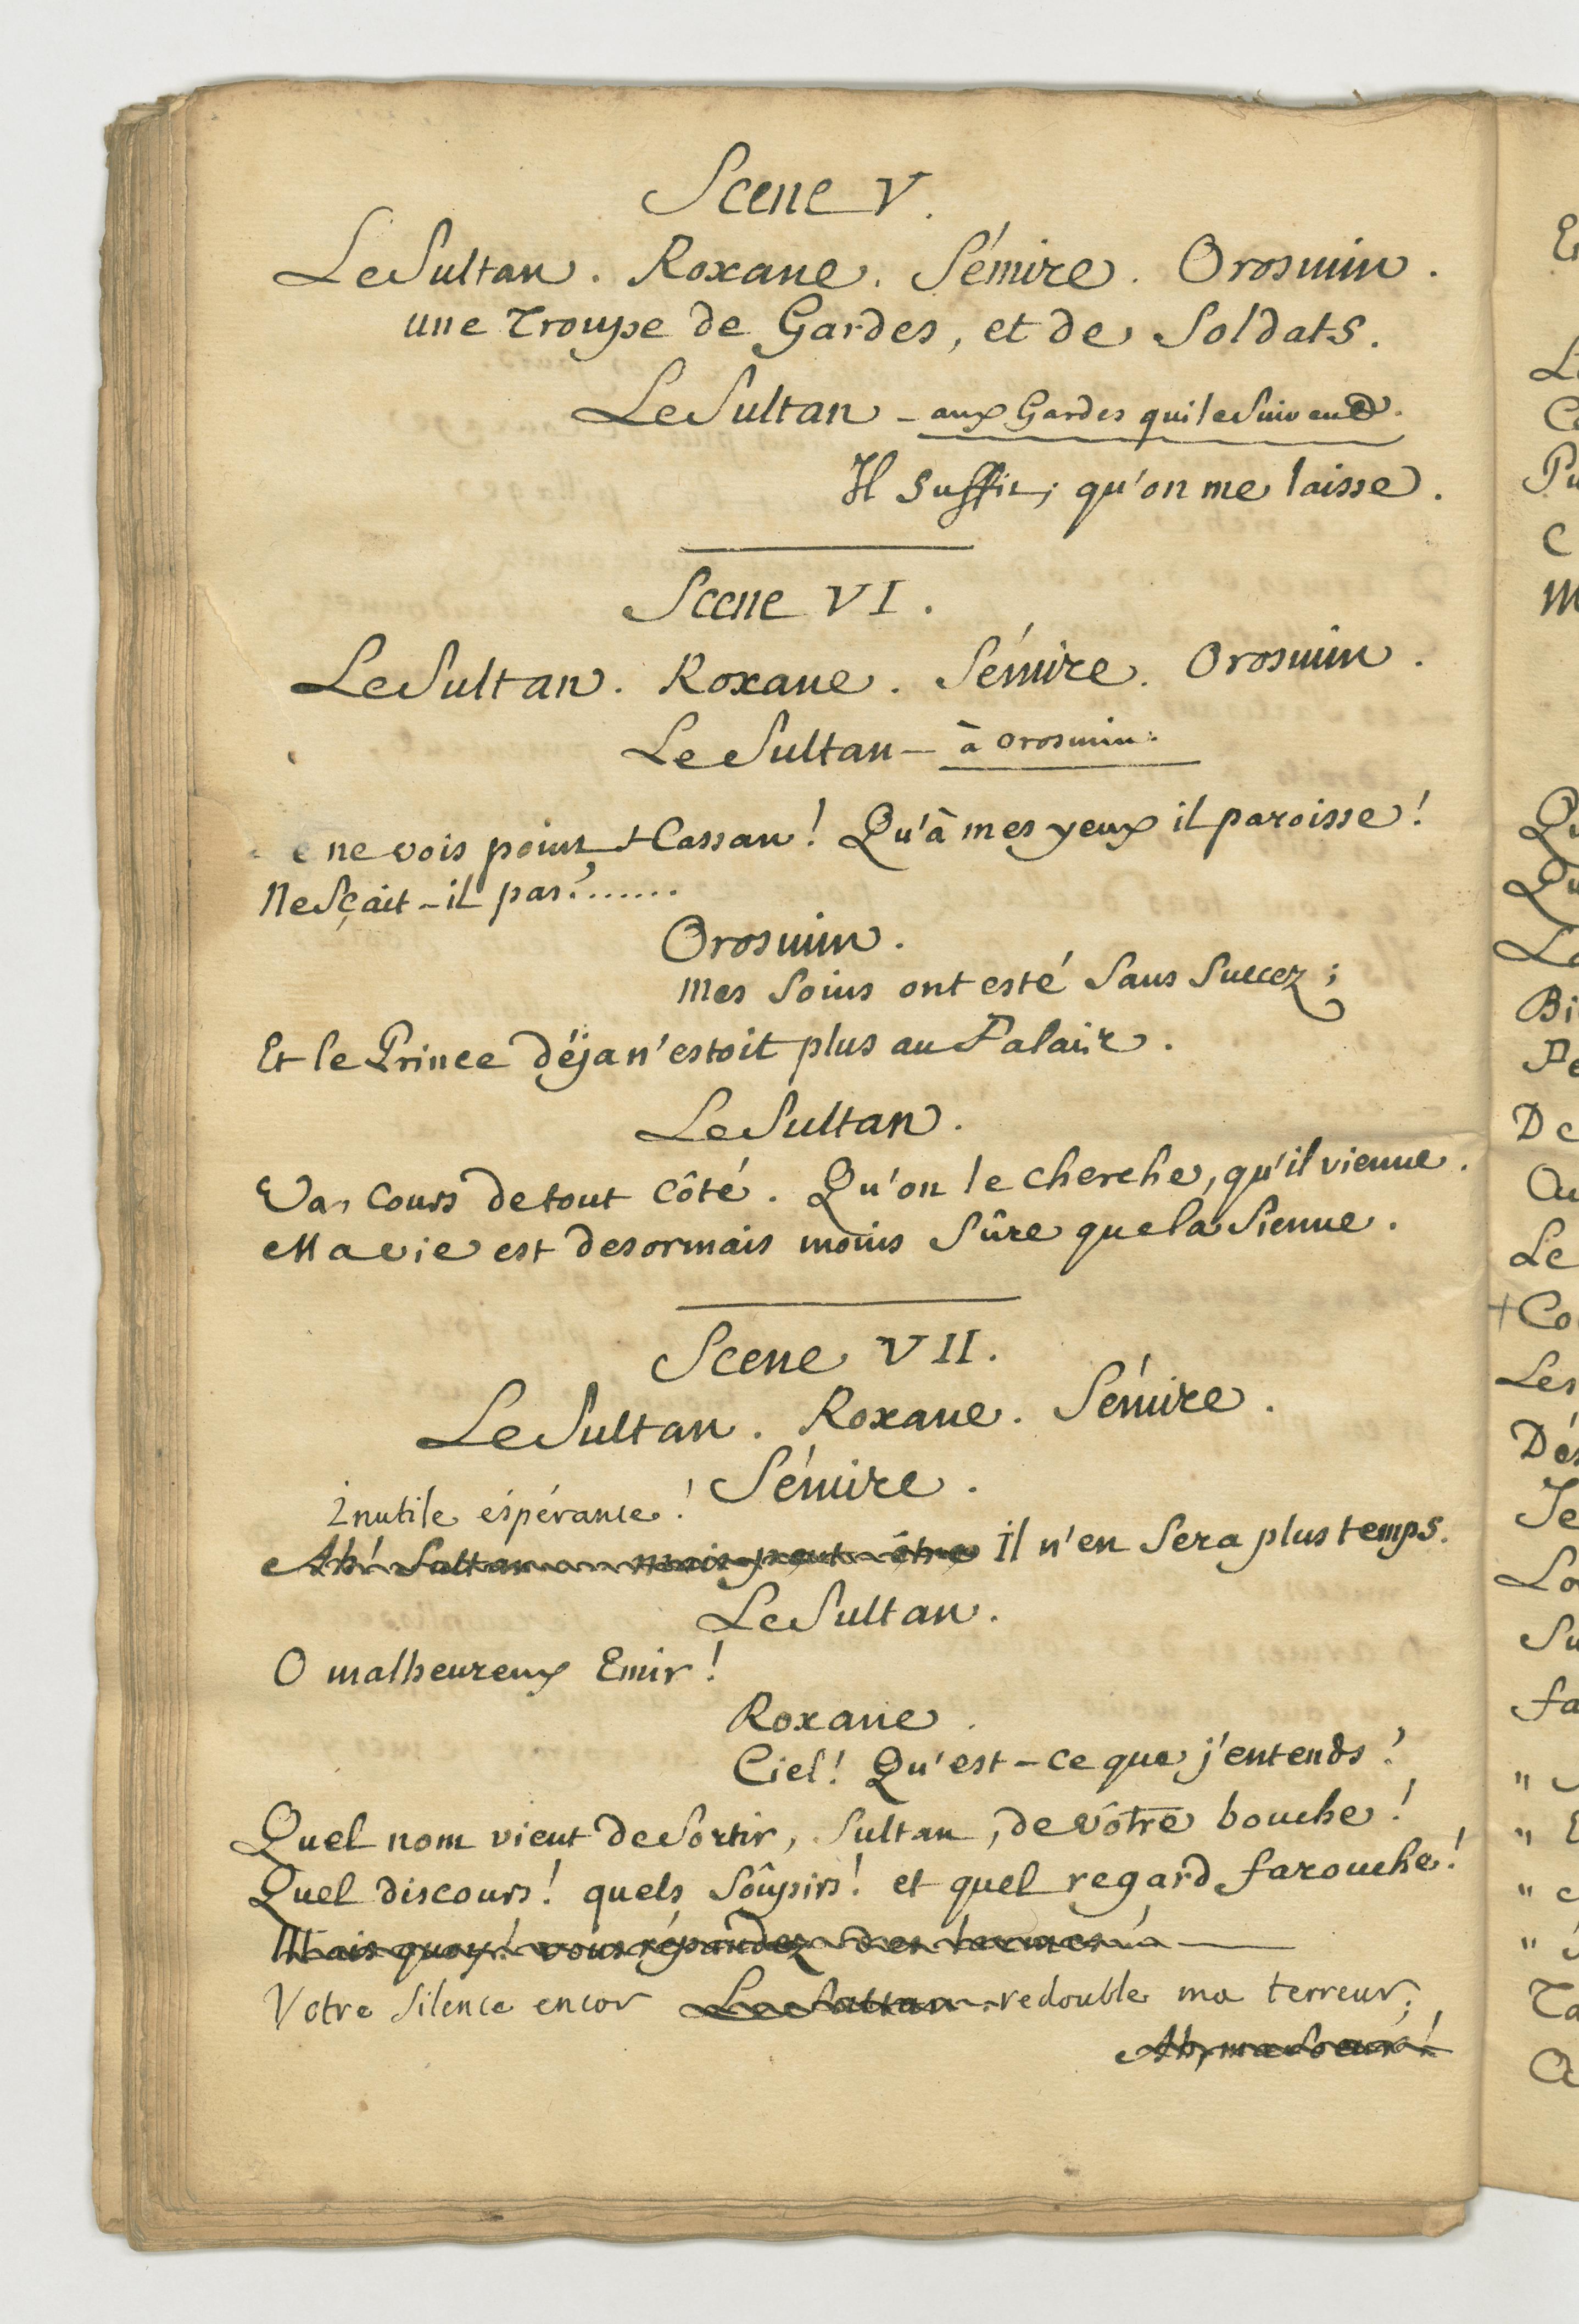 Scene V.
Le Sultan. Roxane. Sémire. Orosmin.
une Troupe de Gardes, et de Soldats.
Le Sultan - aux Gardes qui le Suivent.
Il Suffit; qu'on me laisse.
Scene VI.
Le Sultan. Roxane. Sémire. Orosmin.
Le Sultan - à Orosmin.
e ne vois point Hassan! Qu'à mes yeux il paroisse!
Ne Sçait-il pas?.......
Orosmin.
Mes Soins ont esté Sans Succez;
Et le Prince déja n'estoit plus au Palais.
Le Sultan.
Va, cours de tout côté. Qu'on le cherche, qu'il vienne.
Ma vie est desormais moins Sûre que la Sienne.
Scene VII.
Le Sultan. Roxane. Sémire.
Sémire.
Inutile éspérance!
Ah! Sultan mais peut être il n'en Sera plus temps.
Le Sultan.
O malheureux Emir!
Roxane.
Ciel! Qu'est-ce que j'entends?
Quel nom vient de Sortir, Sultan, de vôtre bouche!
Quel discours! quels Soûpirs! et quel regard farouche!
Mais quoy! vous répandez des larmes!
Votre Silence encor Le Sultan. redouble ma terreur;
Ah, ma Soeur!